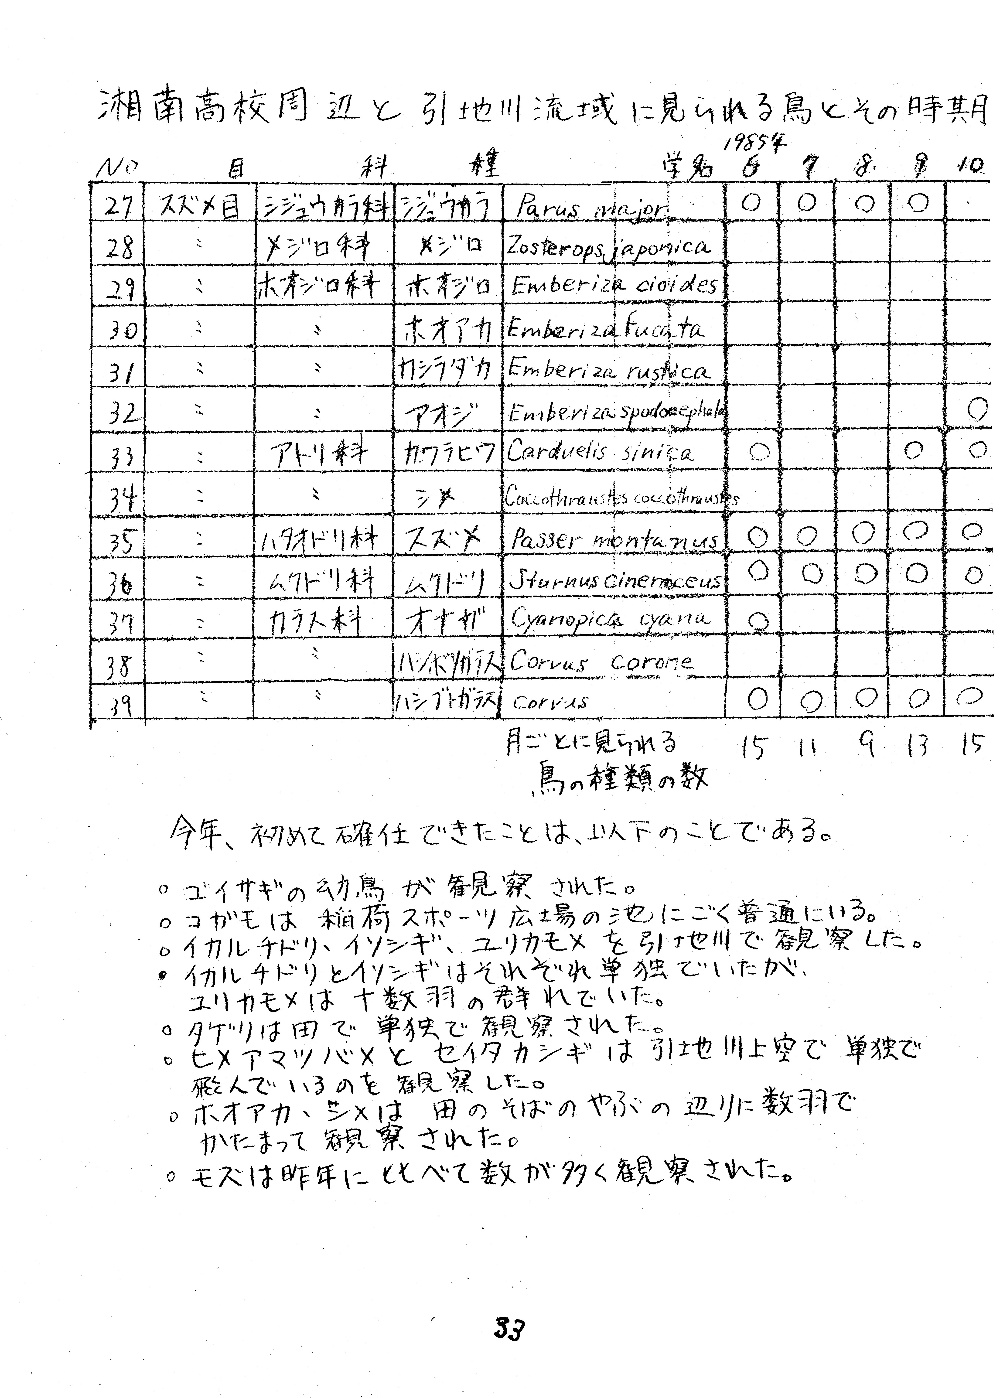 湘南高校周辺と引地川流域に見られる鳥とその時期
1985年
No 目 科 種 学名 6 7 8 9 10
27 スズメ目 シジュウカラ科 シジュウカラ Parus major ○ ○ ○ ○
28 〃 メジロ科 メジロ Zosterops japonica
29 〃 ホオジロ科 ホオジロ Emberiza cioides
30 〃 〃 ホオアカ Emberiza fucata
31 〃 〃 カシラダカ Emberiza rustica
32 〃 〃 アオジ Emberiza spodocephala ○
33 〃 アトリ科 カワラヒワ Carduelis sinica ○ ○ ○
34 〃 〃 シメ Coccothraustes coccothraustes
35 〃 ハタオドリ科 スズメ Passer montanus ○ ○ ○ ○ ○
36 〃 ムクドリ科 ムクドリ Sturnus cineraceus ○ ○ ○ ○ ○
37 〃 カラス科 オナガ Cyanopica cyana ○
38 〃 〃 ハシボソガラス Corvus corone
39 〃 〃 ハシブトガラス corvus ○ ○ ○ ○ ○
月ごとに見られる 15 11 9 13 15
鳥の種類の数
今年、初めて確任できたことは、以下のことである。
○ ゴイサギの幼鳥が観察された。
○ コガモは稲荷スポーツ広場の池にごく普通にいる。
○ イカルチドリ、イソシギ、ユリカモメを引地川で観察した。
• イカルチドリとイソシギはそれぞれ単独でいたが、
ユリカモメは十数羽の群れでいた。
○ タゲリは田で単独で観察された。
○ ヒメアマツバメとセイタカシギは引地川上空で単独で
飛んでいるのを観察した。
○ ホオアカ、シメは田のそばのやぶの辺りに数羽で
かたまって観察された。
○ モズは昨年にともべて数が多く観察された。
33